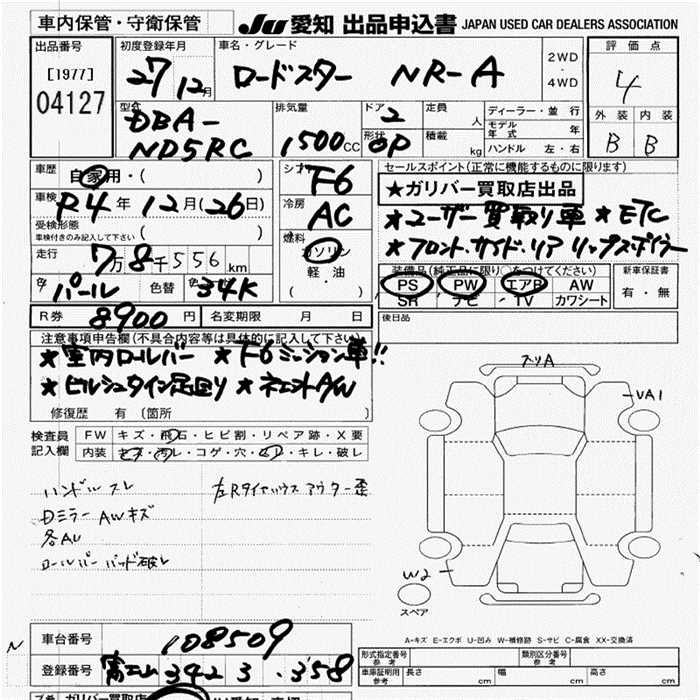 車内保管・守衛保管 JU 愛知 出品申込書 JAPAN USED CAR DEALERS ASSOCIATION
出品番号 [1977] 04127
初度登録年月 27 12月
車名・グレード ロードスター NR-A
2WD・4WD
評価点 4
外装 内装
B B
型式 DBA-ND5RC
排気量 1500cc
ドア 2
形状 OP
定員 人
積載 kg
ディーラー・並行
モデル年式 年
ハンドル 左・右
車歴 自家用・( )
車検 R4年12月(26日)
受検形態 ( )
車検付きのみ記入して下さい
走行 7万8千556km
色 パール 色替 34K
シフト F6
冷房 AC
燃料 ガソリン
軽油
( )
セールスポイント(正常に機能するものに限ります)
★ガリバー買取店出品
★ユーザー買取り車 ★ETC
★フロント.サイド.リア リップスポイラー
装備品(純正品に限り○をつけてください)
PS PW エアB AW
SR ナビ TV カワシート
新車保証書 有・無
後日品
R券 8900円 名変期限 月 日
注意事項申告欄(不具合内容等は具体的に記入して下さい)
★室内ロールバー ★F6ミッション車!!
★ビルシュタイン足回り ★ A/W
修復歴 有 (箇所
検査員記入欄
FW キズ・飛石・ヒビ割・リペア跡・X要
内装 キズ・汚レ・コゲ・穴・スレ・キレ・破レ
ハンドルスレ 左Rタイヤハウスアウター歪
Dミラー AWキズ
各AU
ロールバーパッド破レ
UA1
W2
スペア
A-キズ E-エクボ U-凹み W-補修跡 S-サビ C-腐食 XX-交換済
車台番号 108509
登録番号 富士山 342 3 .358
形式指定番号 参考
類別区分番号 参考
車庫証明用 参考 長さ cm 幅 cm 高さ cm
ガリバー買取店